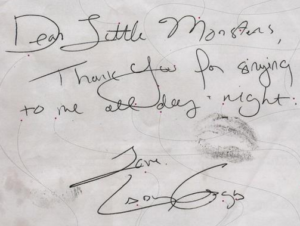 Dear Little Monsters,
Thank You for singing
to me all day + night.
Love,
Lady Gaga